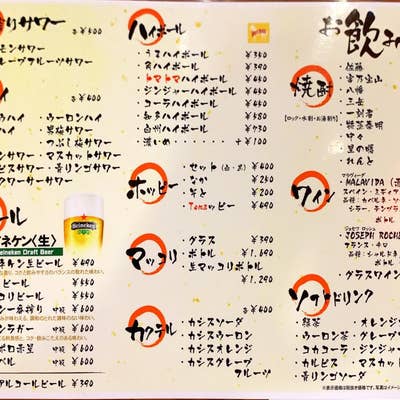 りサワー
各￥400
モンサワー
レープフルーツサワー
イ
各￥400
ハイ・ウーロンハイ
ハイ・黒梅サワー
・つぶし梅サワー
ンサワー・マスカットサワー
ビスサワー・青リンゴサワー
クワーサワー
ール
ネケン〈生〉
Heineken Draft Beer
Heineken
ネケン生ビール ￥490
ビール ￥550
コリビール ￥550
ン一番搾り 中瓶 ￥600
ンラガー 中瓶 ￥600
ポロ赤星 中瓶 ￥600
アルコールビール ￥390
ハイボール
・うまハイボール ￥350
・ハイボール ￥390
・トマトマハイボール ￥450
・ジンジャーハイボール ￥450
・コーラハイボール ￥450
・知多ハイボール ￥590
・白州ハイボール ￥690
・濃いめ ＋￥100
ホッピー
・セット(白・黒) ￥400
・なか ￥250
・そと ￥200
・Tomaッピー ￥490
マッコリ
・グラス ￥390
・ボトル ￥1,690
・生マッコリボトル
￥1,290
カクテル
￥400
・カシスソーダ
・カシスウーロン
・カシスオレンジ
・カシスグレープ
フルーツ
お飲み
焼酎
【ロック・水割・お湯割り】
・佐藤
・富乃宝山
・八幡
・三岳
・一刻者
・特蒸泰明
・中々
・里の曙
・れんと
ワイン
MALAVIDA
スペイン・
品種：カベルネ・
シラー・テンプラ
ボトル
JOSEPH ROCHE
フランス・
品種：シャルドネ
ボトル
・グラスワイン
ソフトドリンク
・緑茶・オレンジ
・ウーロン茶・グレープ
・コカコーラ・ジンジャー
・カルピス・マスカット
・青リンゴソーダ